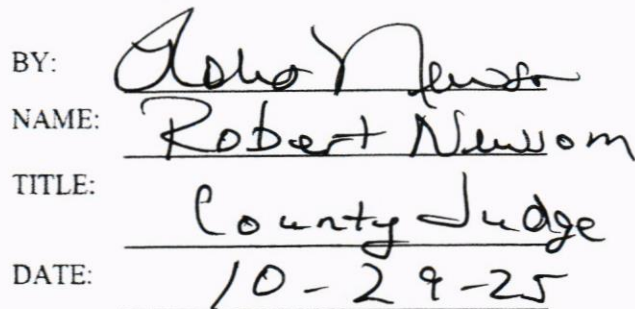 BY: Robert Newsom
NAME: Robert Newsom
TITLE: County Judge
DATE: 10-29-25